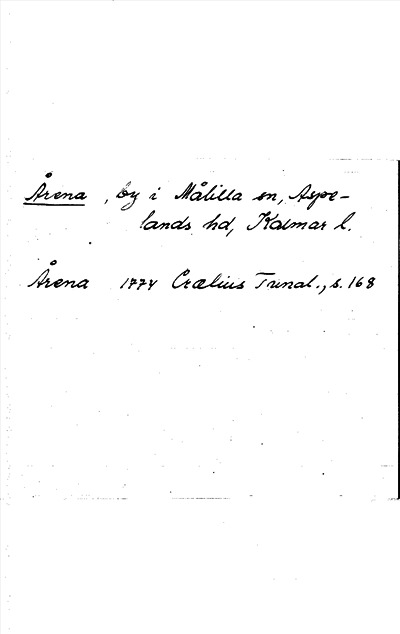 Årena , by i Målilla sn, Aspe-
lands hd, Kalmar l.
Årena 1774 Crælius Tunal., s. 168